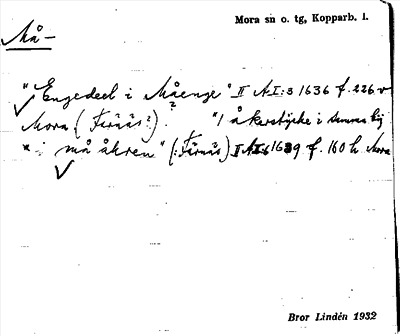 Mora sn o. tg, Kopparb. l.
Må-
"Engedeel i Måenge" II A I:3 1636 f. 226 v
Mora (Färnäs?). ? "1 åkerstycke i samma by
" : må åkren" (: Färnäs) II A I:6 1639 f. 160 h. Mora
Bror Lindén 1932